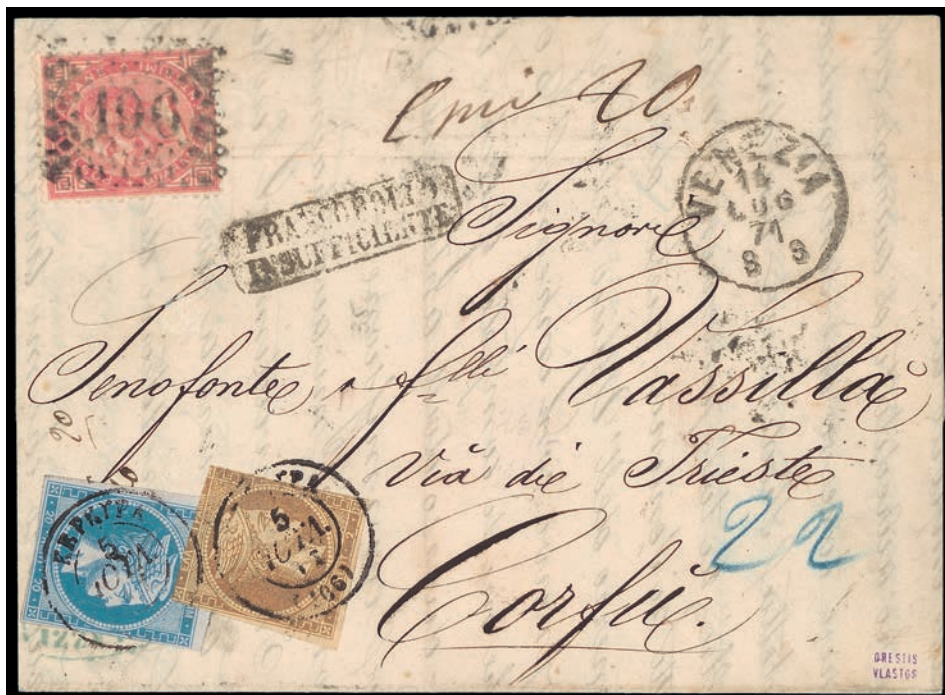 196
20
FRANCOBOLLO
INSUFFICIENTE
VENEZIA
14
LUG
71
8 S
Signore
Senofonte e flli Vassilla
20
Via di Trieste
22
Corfù.
ΚΕΡΚΥΡΑ
5
ΙΟΥΛ.
20
5
ΙΟΥΛ.
71
(66)
ORESTIS
VLASTOS